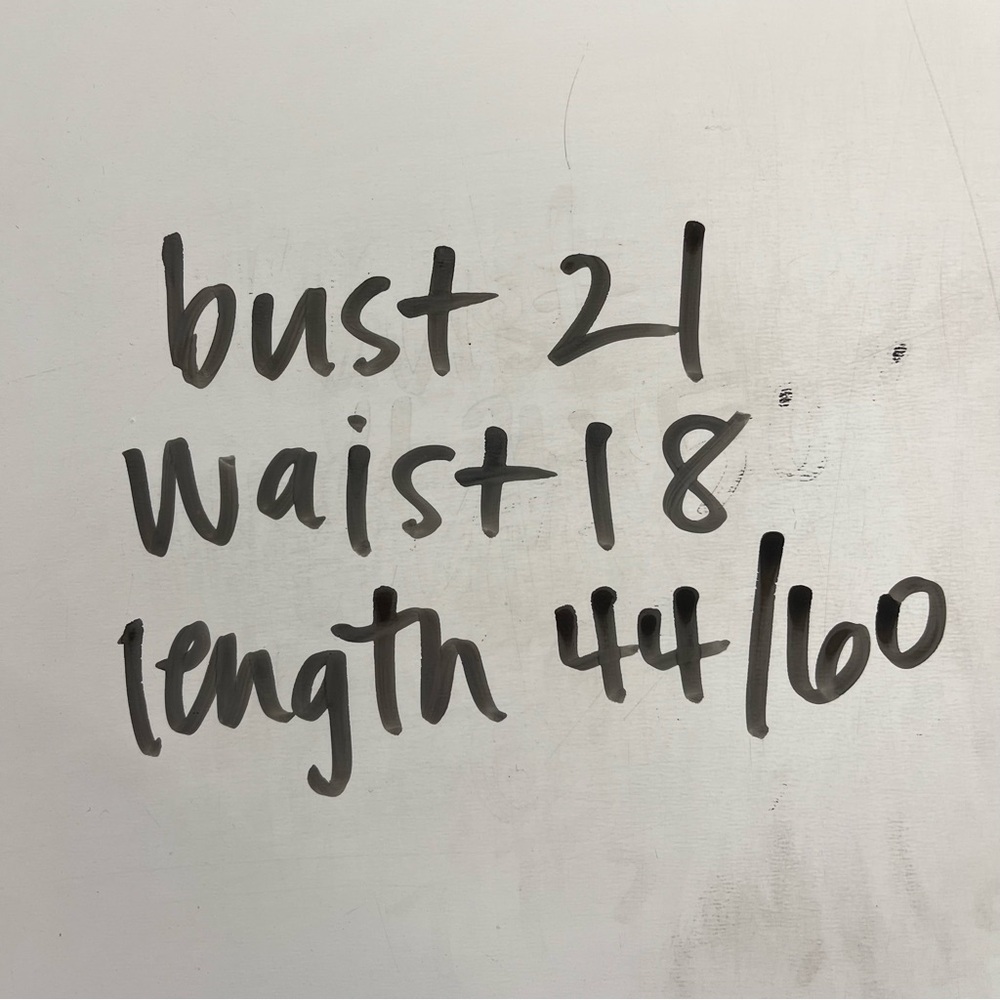 bust 21
waist 18
length 44/60